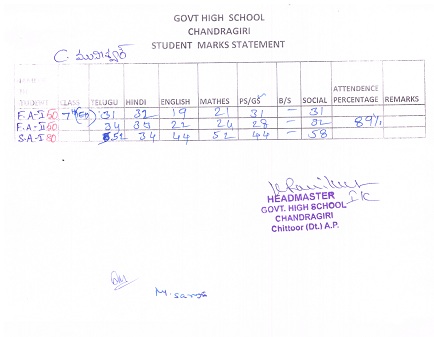 GOVT HIGH SCHOOL
CHANDRAGIRI
STUDENT MARKS STATEMENT
C.
STUDENT CLASS TELUGU HINDI ENGLISH MATHES PS/GS B/S SOCIAL ATTENDENCE PERCENTAGE REMARKS
F.A-I 50 7th 31 32 19 21 31 – 31
F.A-II 50 34 35 22 24 28 – 32 89%
S.A-I 80 52 34 44 52 44 – 58
HEADMASTER
GOVT. HIGH SCHOOL
CHANDRAGIRI
Chittoor (Dt.) A.P.